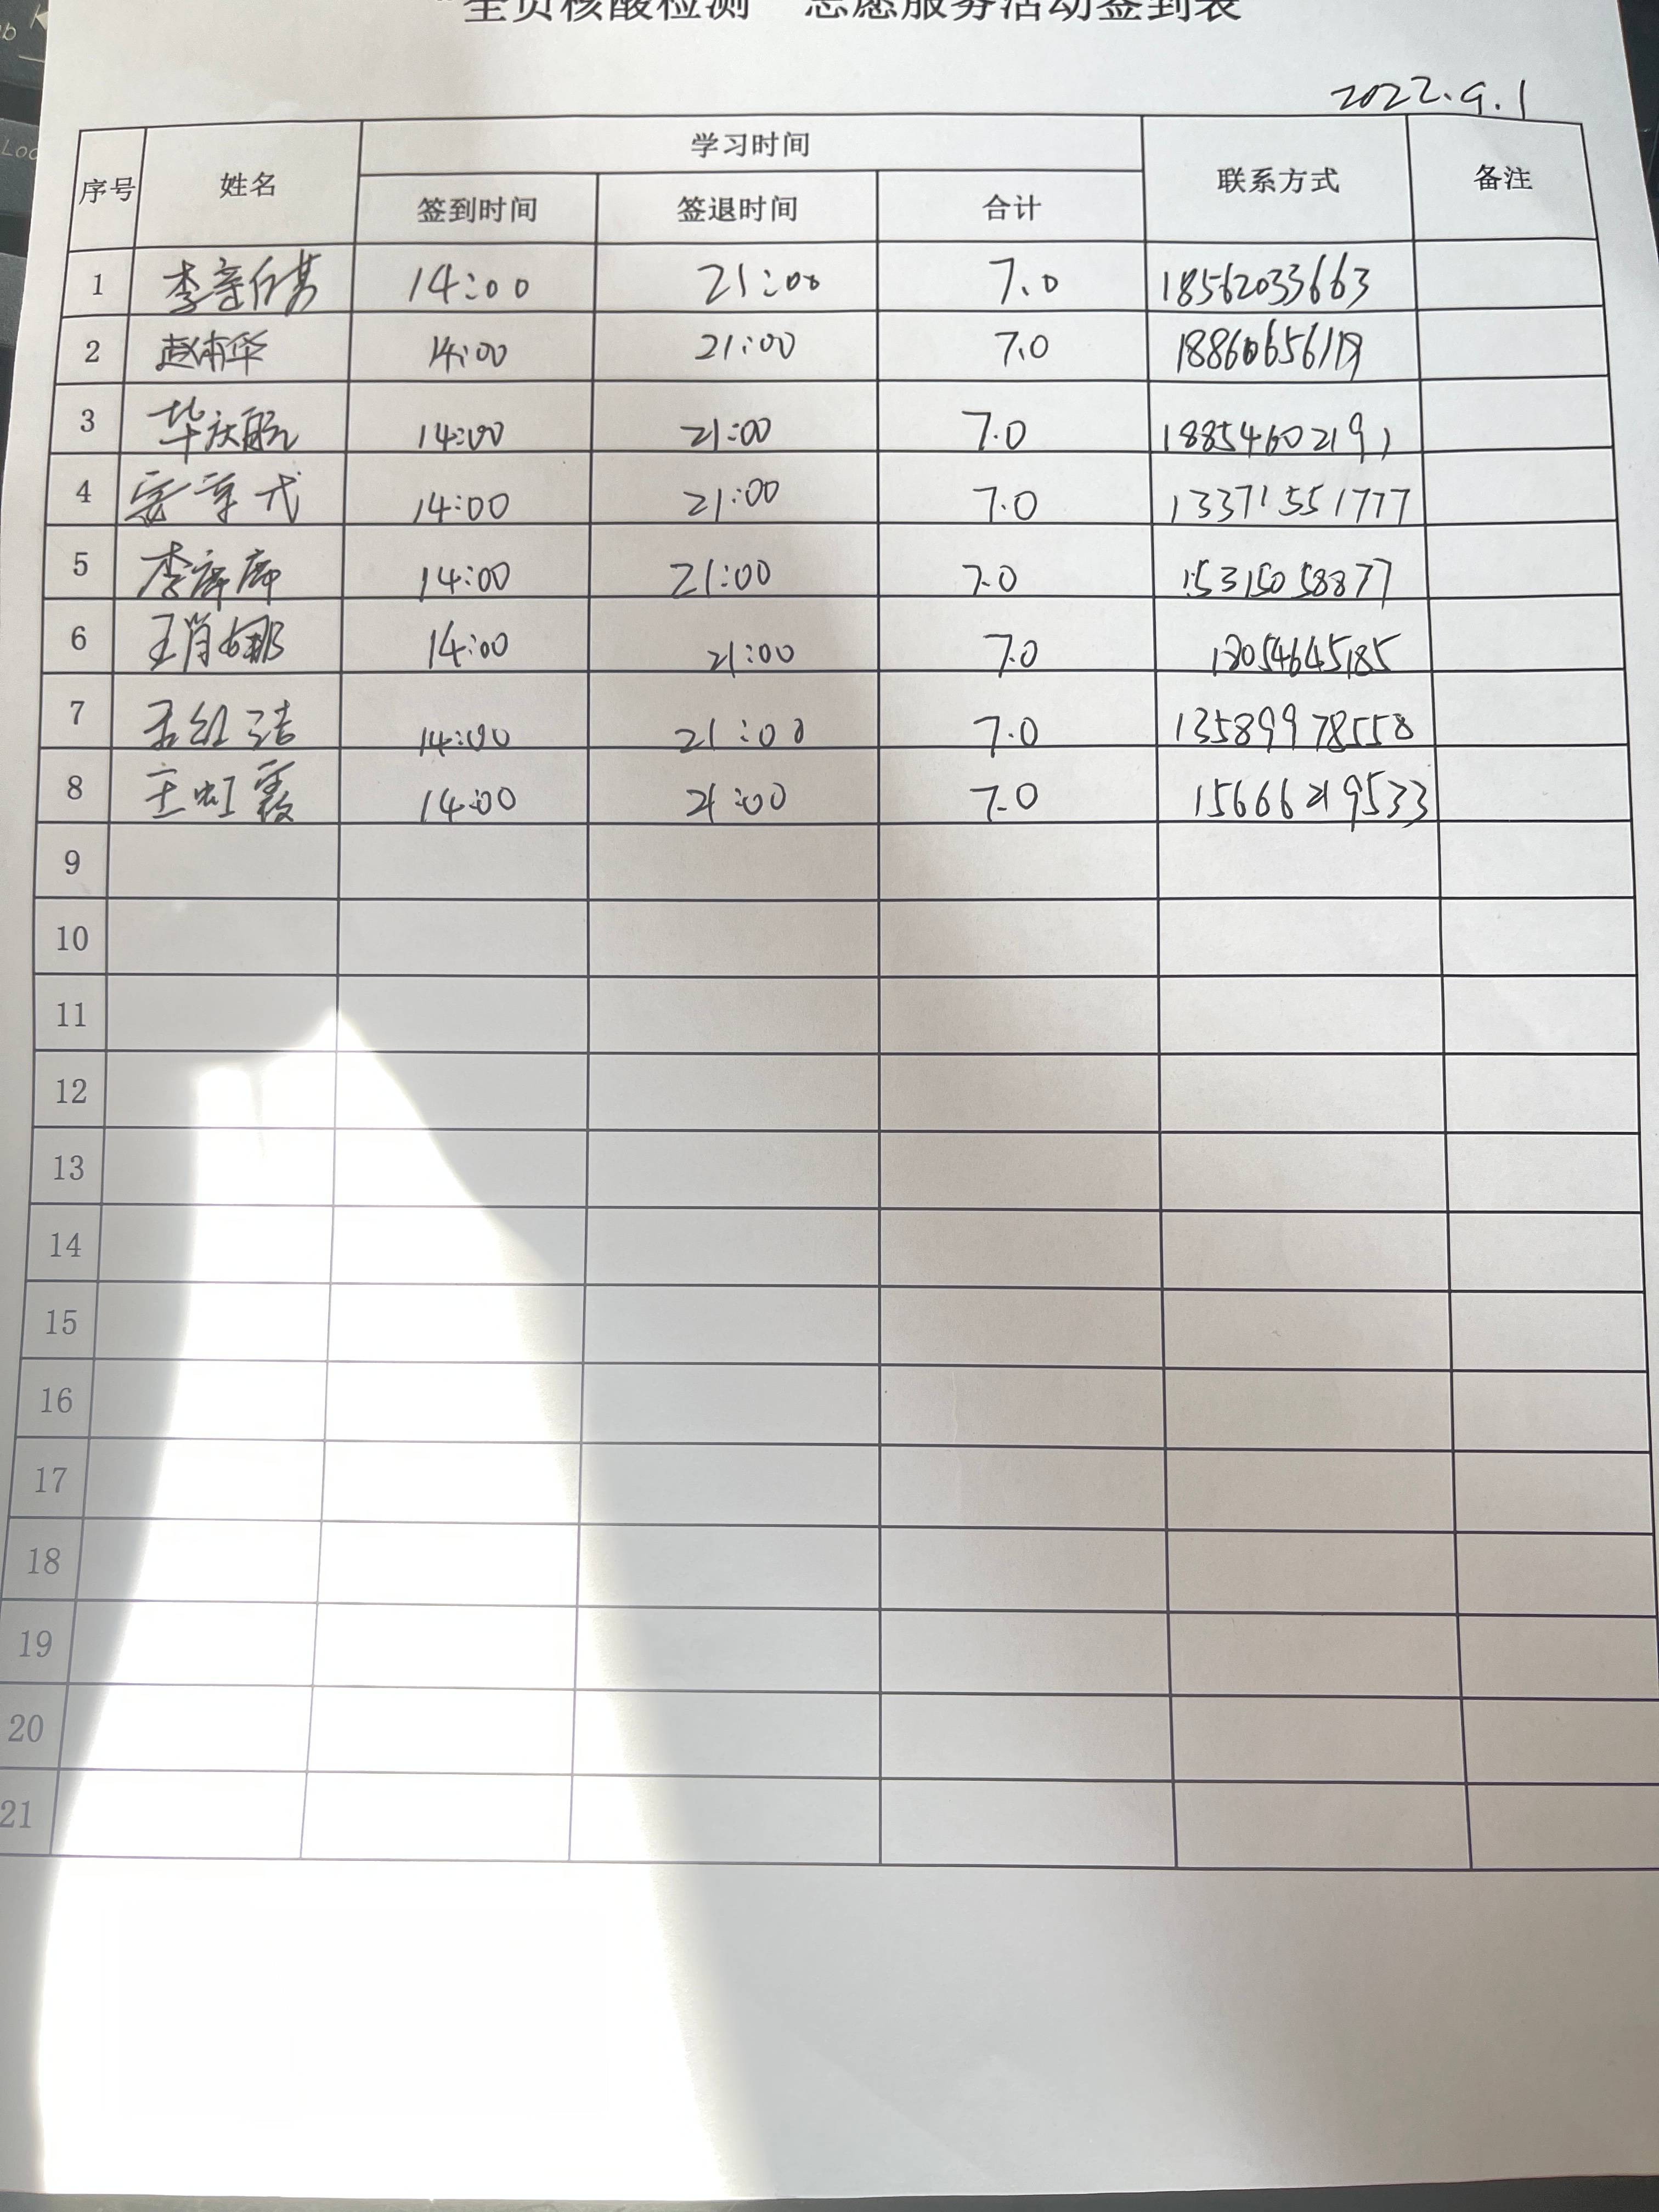 “全员核酸检测”志愿服务活动签到表
2022.9.1
序号 姓名 学习时间 联系方式 备注
签到时间 签退时间 合计
1 14:00 21:00 7.0 18562033663
2 14:00 21:00 7.0
3 14:00 21:00 7.0 18854602191
4 14:00 21:00 7.0 13371551777
5 14:00 21:00 7.0 15315058877
6 王肖娜 14:00 21:00 7.0 18054645185
7 14:00 21:00 7.0 13589978558
8 王虹霞 14:00 21:00 7.0 15666219533
9
10
11
12
13
14
15
16
17
18
19
20
21